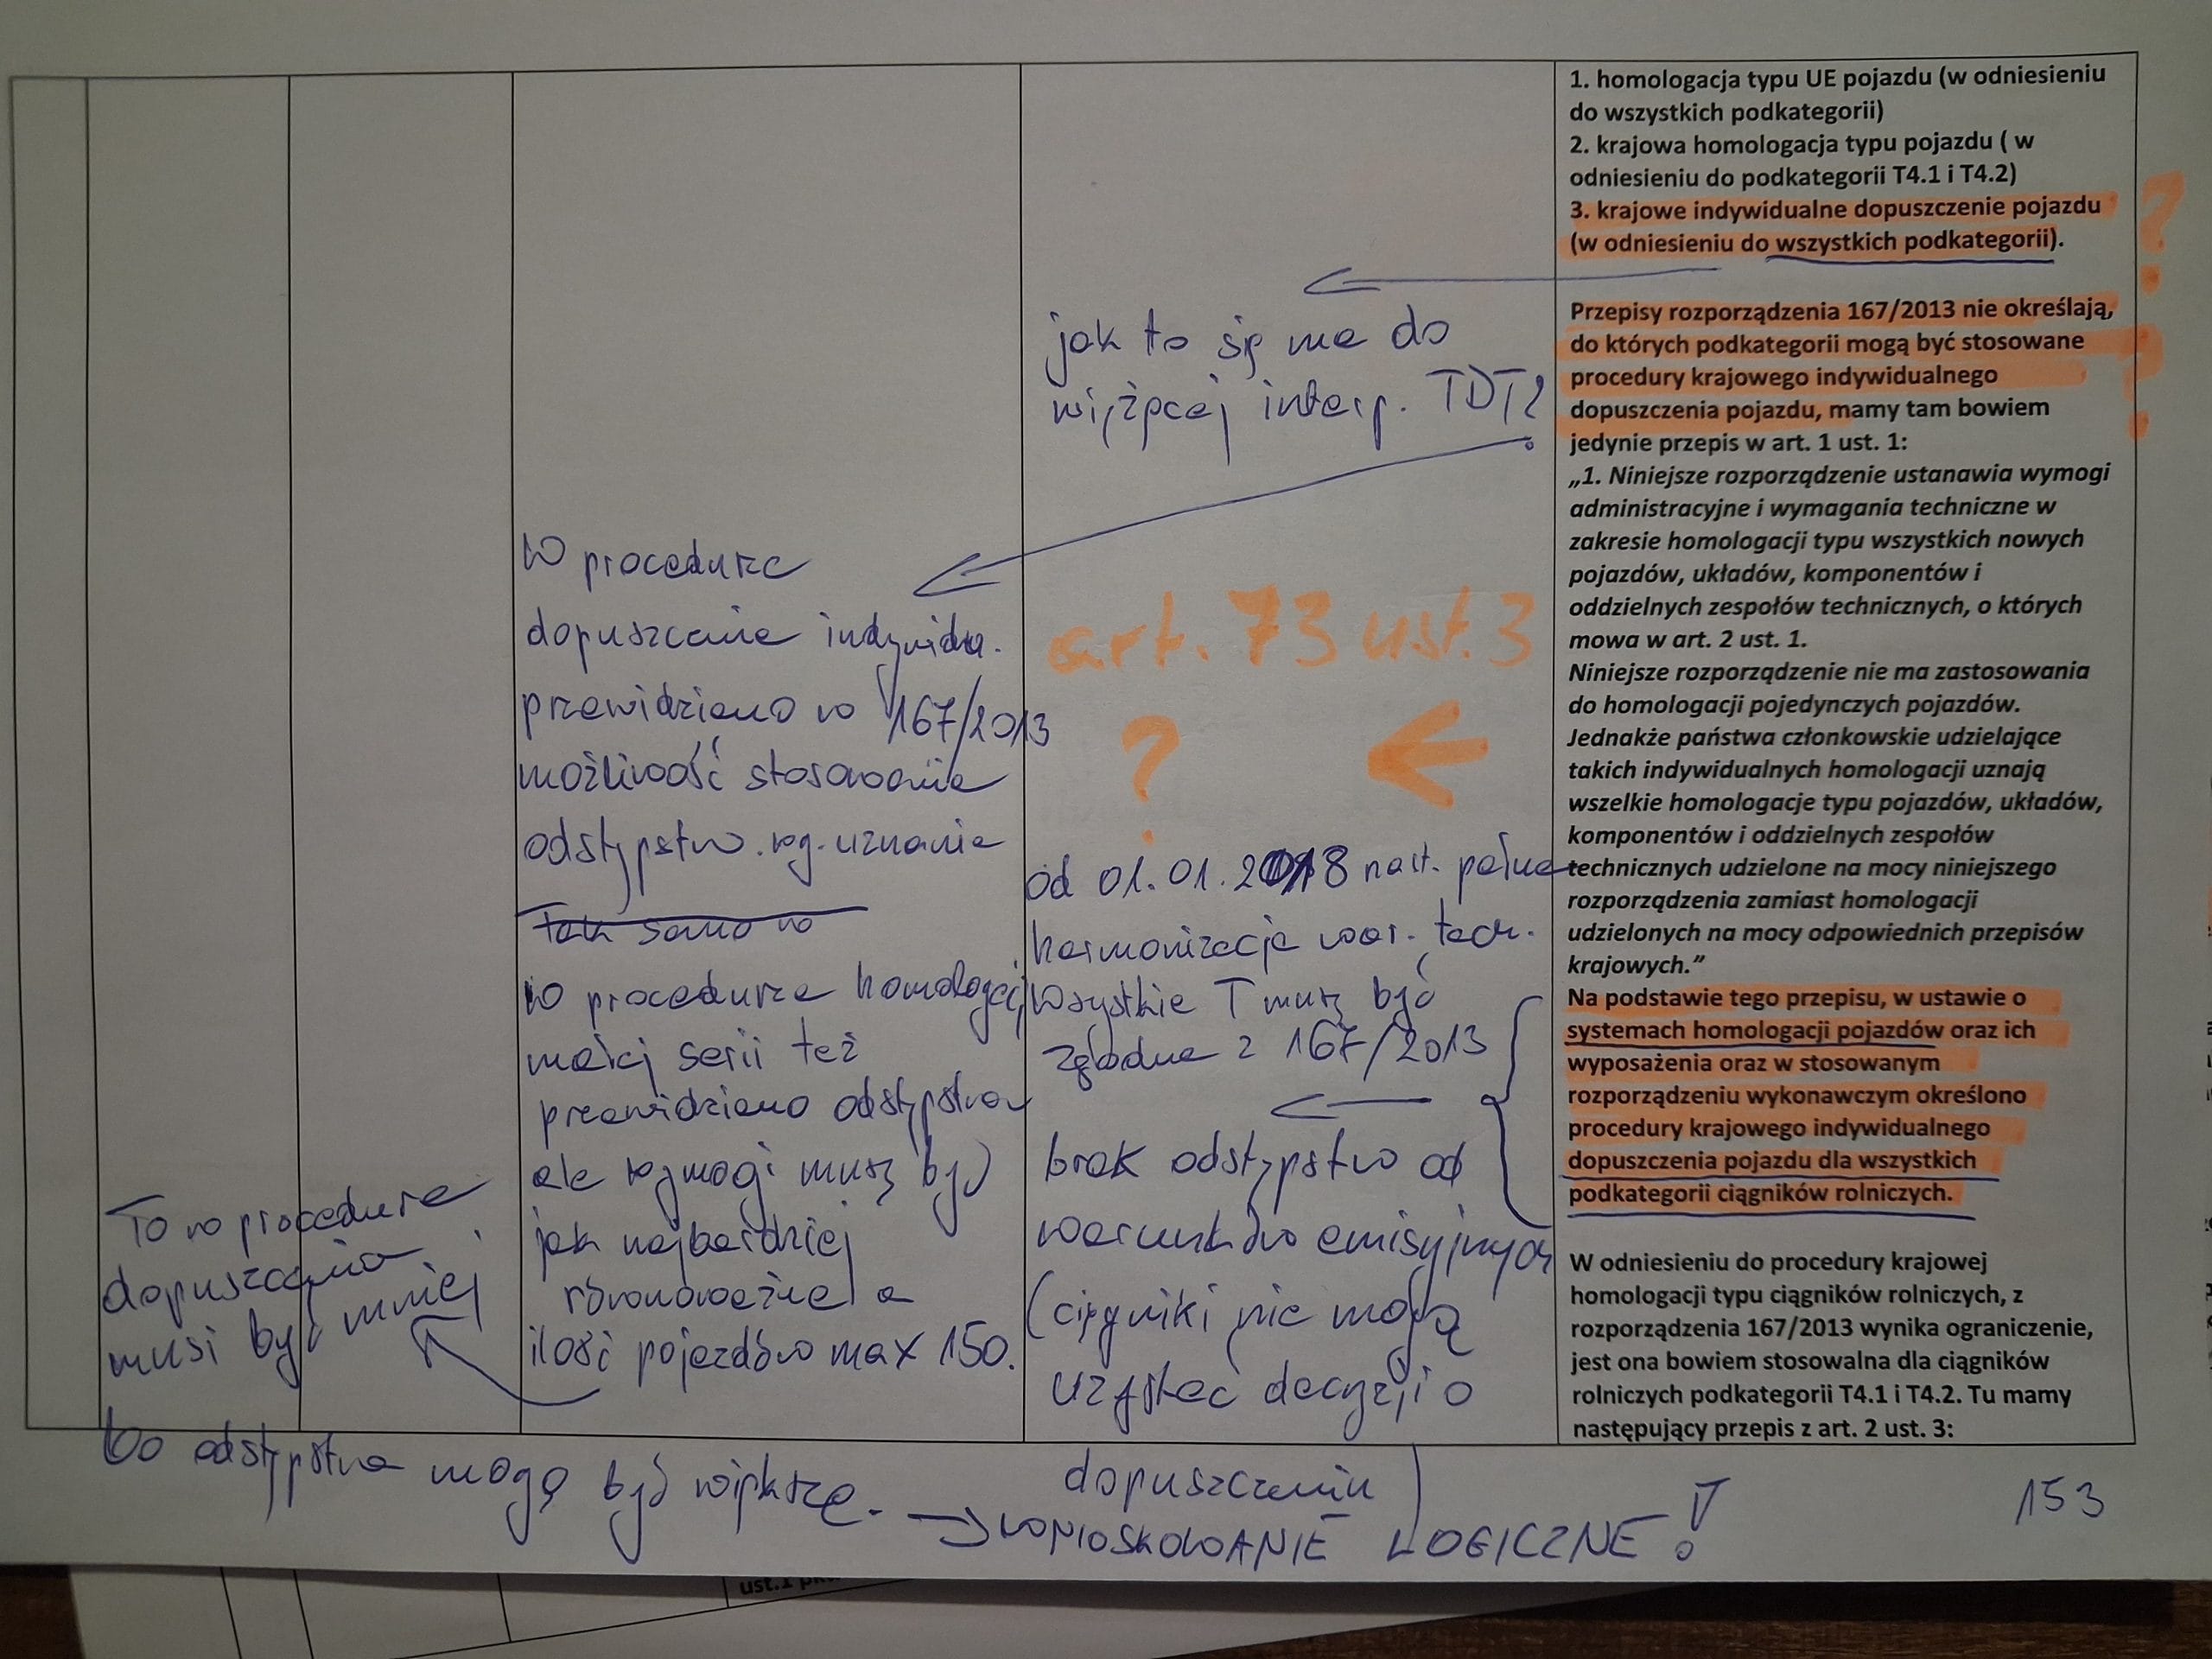 1. homologacja typu UE pojazdu (w odniesieniu
do wszystkich podkategorii)
2. krajowa homologacja typu pojazdu ( w
odniesieniu do podkategorii T4.1 i T4.2)
3. krajowe indywidualne dopuszczenie pojazdu
(w odniesieniu do wszystkich podkategorii).
?
Przepisy rozporządzenia 167/2013 nie określają,
do których podkategorii mogą być stosowane
procedury krajowego indywidualnego
dopuszczenia pojazdu, mamy tam bowiem
jedynie przepis w art. 1 ust. 1:
?
„1. Niniejsze rozporządzenie ustanawia wymogi
administracyjne i wymagania techniczne w
zakresie homologacji typu wszystkich nowych
pojazdów, układów, komponentów i
oddzielnych zespołów technicznych, o których
mowa w art. 2 ust. 1.
Niniejsze rozporządzenie nie ma zastosowania
do homologacji pojedynczych pojazdów.
Jednakże państwa członkowskie udzielające
takich indywidualnych homologacji uznają
wszelkie homologacje typu pojazdów, układów,
komponentów i oddzielnych zespołów
technicznych udzielone na mocy niniejszego
rozporządzenia zamiast homologacji
udzielonych na mocy odpowiednich przepisów
krajowych.”
Na podstawie tego przepisu, w ustawie o
systemach homologacji pojazdów oraz ich
wyposażenia oraz w stosowanym
rozporządzeniu wykonawczym określono
procedury krajowego indywidualnego
dopuszczenia pojazdu dla wszystkich
podkategorii ciągników rolniczych.
W odniesieniu do procedury krajowej
homologacji typu ciągników rolniczych, z
rozporządzenia 167/2013 wynika ograniczenie,
jest ona bowiem stosowalna dla ciągników
rolniczych podkategorii T4.1 i T4.2. Tu mamy
następujący przepis z art. 2 ust. 3:
jak to się ma do
wiążącej interp. TDT?
art. 73 ust. 3
?
od 01.01.2018 nast. pełna
harmonizacja war. tech.
Wszystkie T muszą być
zgodne z 167/2013
brak odstępstw od
warunków emisyjnych
(ciągniki nie mogą
uzyskać decyzji o
dopuszczeniu)
W procedurze
dopuszczenia indywidu.
przewidziano w 167/2013
możliwość stosowania
odstępstw wg. uznania
tak samo w
W procedurze homologacji
małej serii też
przewidziano odstępstwa
ale wymogi muszą być
jak najbardziej
równoważne a
ilość pojazdów max 150.
To w procedurze
dopuszczenia
musi być mniej
bo odstępstwa mogą być większe.
WNIOSKOWANIE LOGICZNE!
153
ust.1